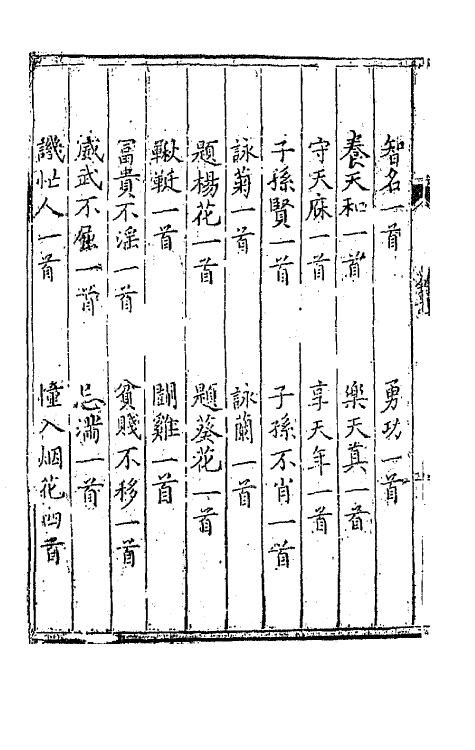 智名一首　勇功一首
養天和一首　樂天真一首
守天庥一首　享天年一首
子孫賢一首　子孫不肖一首
詠菊一首　詠蘭一首
題楊花一首　題葵花一首
鞦韆一首　鬬雞一首
冨貴不滛一首　貧賤不移一首
威武不屈一首　忌滿一首
譏忙人一首　憧入烟花四首